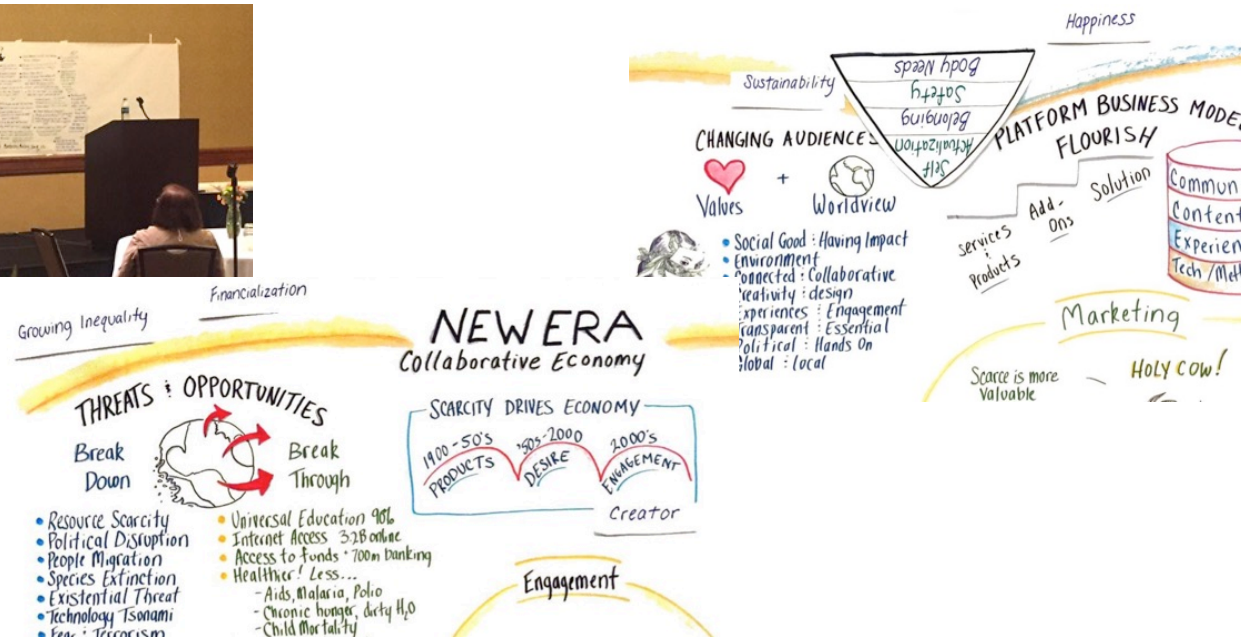 Happiness
Sustainability
Body Needs
Safety
Belonging
Self
Actualization
CHANGING AUDIENCES
Values + Worldview
• Social Good : Having Impact
• Environment
Connected : Collaborative
reativity : design
xperiences : Engagement
ransparent : Essential
olitical : Hands On
lobal : local
PLATFORM BUSINESS MODE
FLOURISH
Services : Products
Add-Ons
Solution
Commun
Content
Experien
Tech / Met
Marketing
Scarce is more
Valuable
HOLY COW!
Growing Inequality
Financialization
NEW ERA
Collaborative Economy
THREATS : OPPORTUNITIES
Break
Down
Break
Through
• Resource Scarcity
• Political Disruption
• People Migration
• Species Extinction
• Existential Threat
• Technology Tsonami
• Fear : Terrorism
• Universal Education 90%
• Internet Access 3.2B online
• Access to funds • 700m banking
• Healthier! Less...
- Aids, Malaria, Polio
- Chronic hunger, dirty H2O
- Child Mortality
SCARCITY DRIVES ECONOMY
1900-50's
PRODUCTS
'50s-2000
DESIRE
2000's
ENGAGEMENT
Creator
Engagement